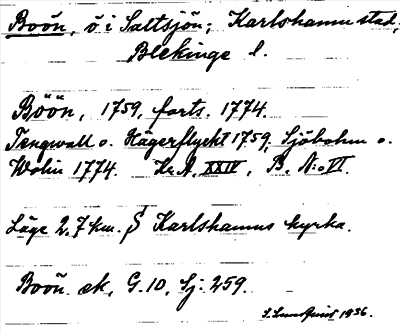 Boön, ö i Saltsjön; Karlshamn stad,
Blekinge l.
Böön, 1759, forts. 1774.
Tengwall o. Hägerflyckt 1759, Sjöbohm o.
Wolin 1774. Kr.A. XXIV, B, N:o VI.
Läge 2,7 km. S Karlshamns kyrka.
Boön ek, G.10, Sj. 259.
S. Lundquist 1936.